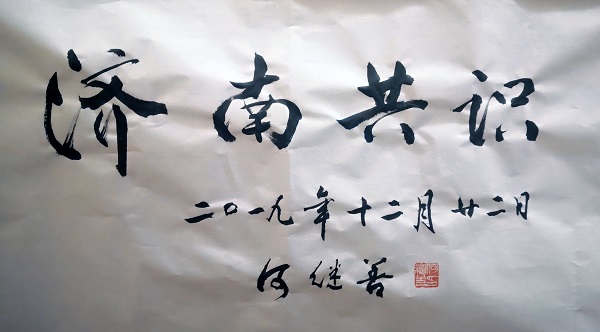 济南共识
二〇一九年十二月廿二日
何继善